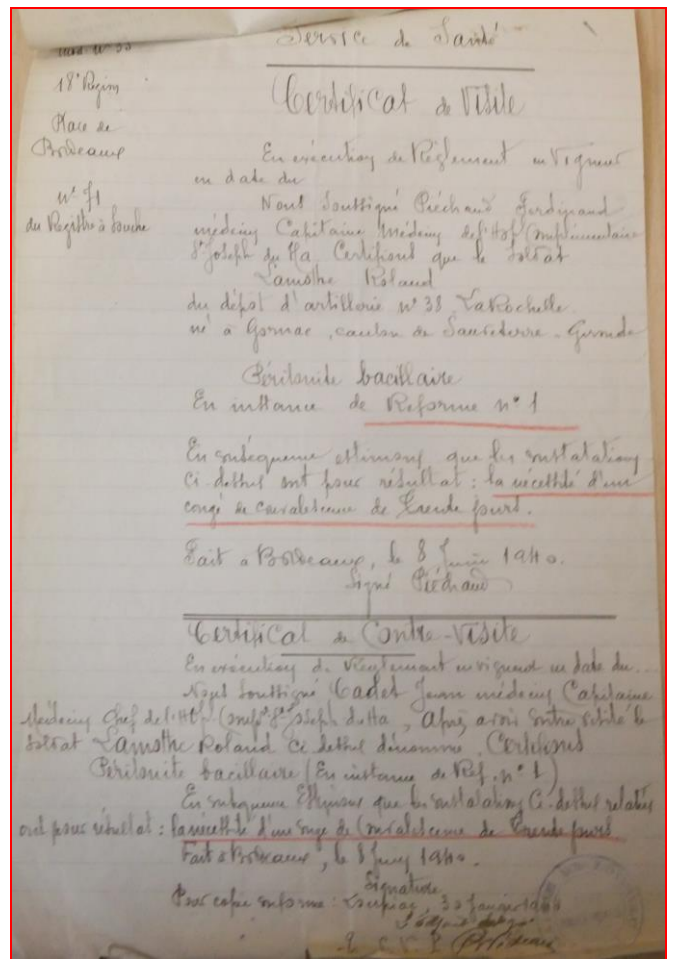 Service de Santé
18e Région
Place de
Bordeaux
n° 71
du Registre à souche
Certificat de Visite
En exécution de Règlement en vigueur
en date du
Nous soussigné Piéchaud Ferdinand
médecin Capitaine Médecin de l'Hop Complémentaire
St Joseph du Ha Certifions que le Soldat
Lamothe Roland
du dépôt d'artillerie n° 38 La Rochelle
né à Gornac, canton de Sauveterre - Gironde
Péritonite bacillaire
En instance de Réforme n° 1
En conséquence estimons que les constatations
Ci-dessus ont pour résultat : la nécessité d'un
congé de convalescence de trente jours.
Fait à Bordeaux, le 8 Juin 1940.
Signé Piéchaud
Certificat de Contre-Visite
En exécution de Règlement en vigueur en date du..
Nous soussigné Cadet Jean médecin Capitaine
Médecin Chef de l'Hop Compre St Joseph du Ha, après avoir contre visité le
Soldat Lamothe Roland Ci-dessus dénommé, Certifions
Péritonite bacillaire (En instance de Ref. n° 1)
En conséquence Estimons que les constatations Ci-dessus relatées
ont pour résultat : la nécessité d'un congé de Convalescence de trente jours
Fait à Bordeaux, le 8 Juin 1940.
Signature
Pour copie conforme : Loupiac, 30 Janvier